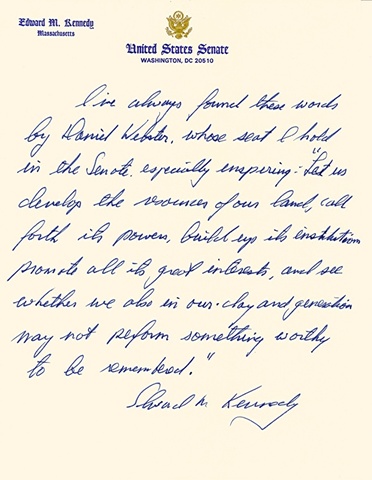 Edward M. Kennedy
Massachusetts
United States Senate
WASHINGTON, DC 20510
I've always found these words
by Daniel Webster, whose seat I hold
in the Senate, especially inspiring: "Let us
develop the resources of our land, call
forth its powers, build up its institutions
promote all its great interests, and see
whether we also in our day and generation
may not perform something worthy
to be remembered."
Edward M Kennedy